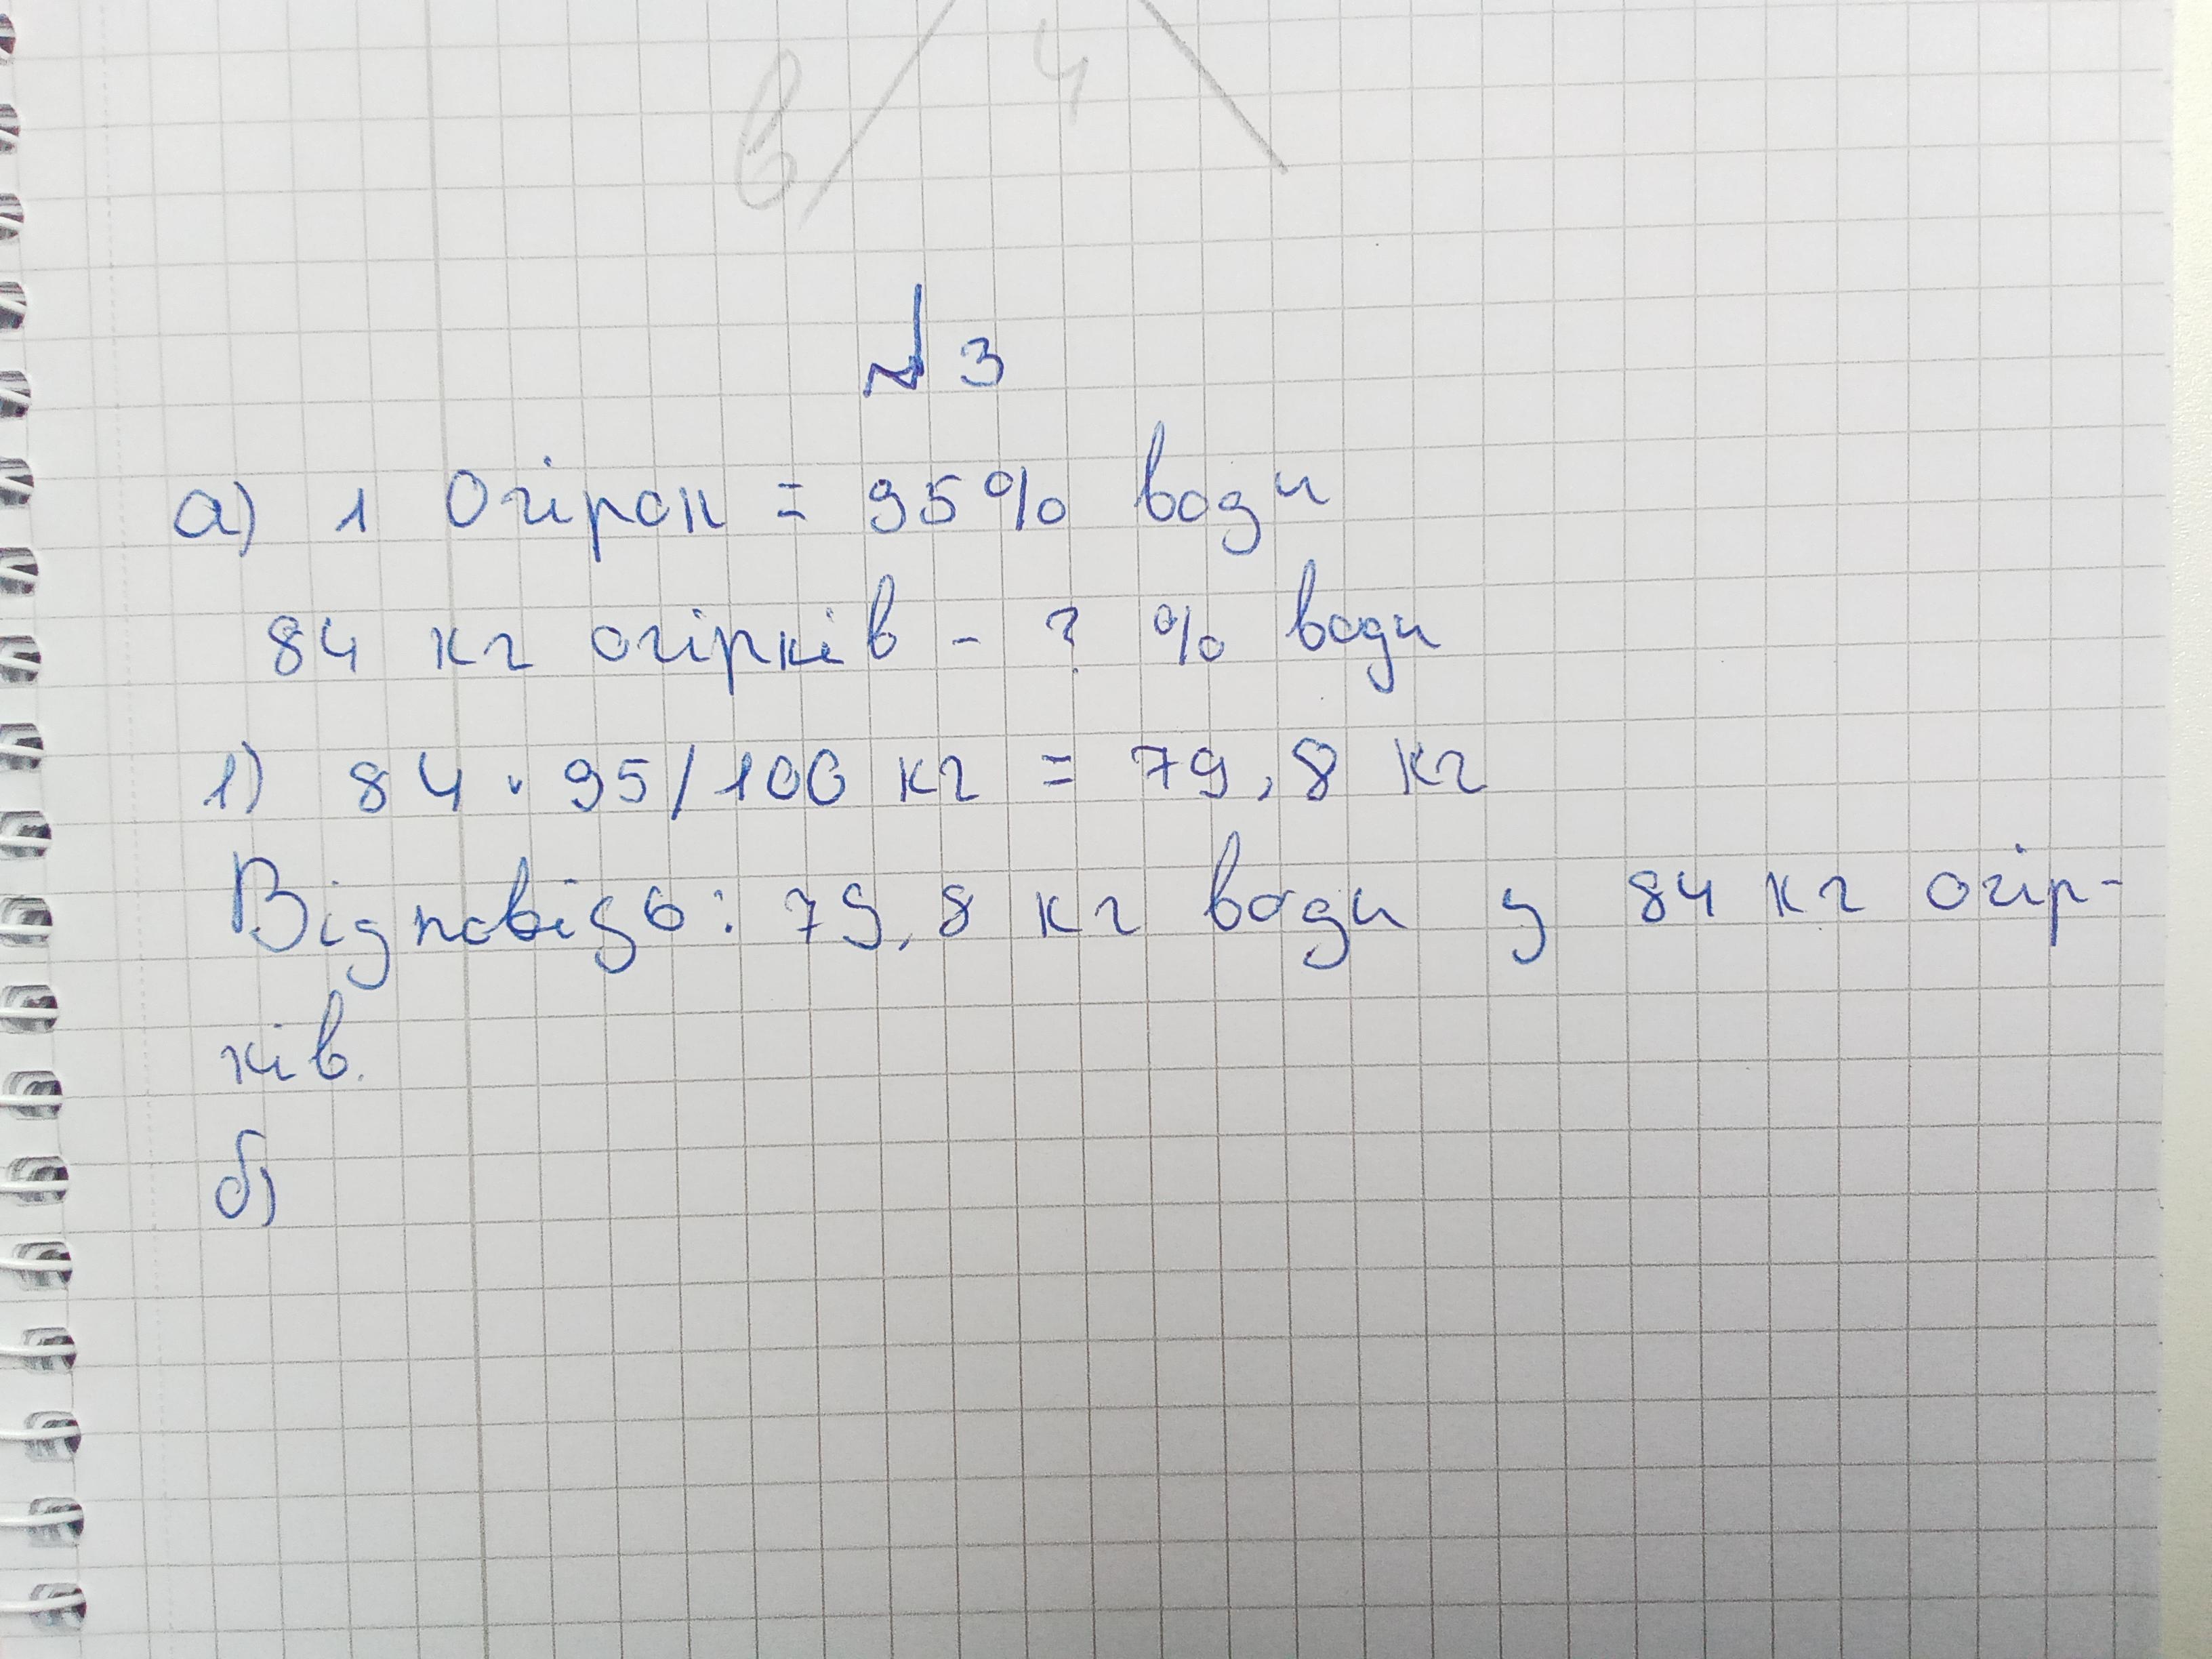 в 4
№3
а) 1 Огірок = 95% води
84 кг огірків - ? % води
1) 84 · 95/100 кг = 79,8 кг
Відповідь: 79,8 кг води у 84 кг огір-
ків.
б)